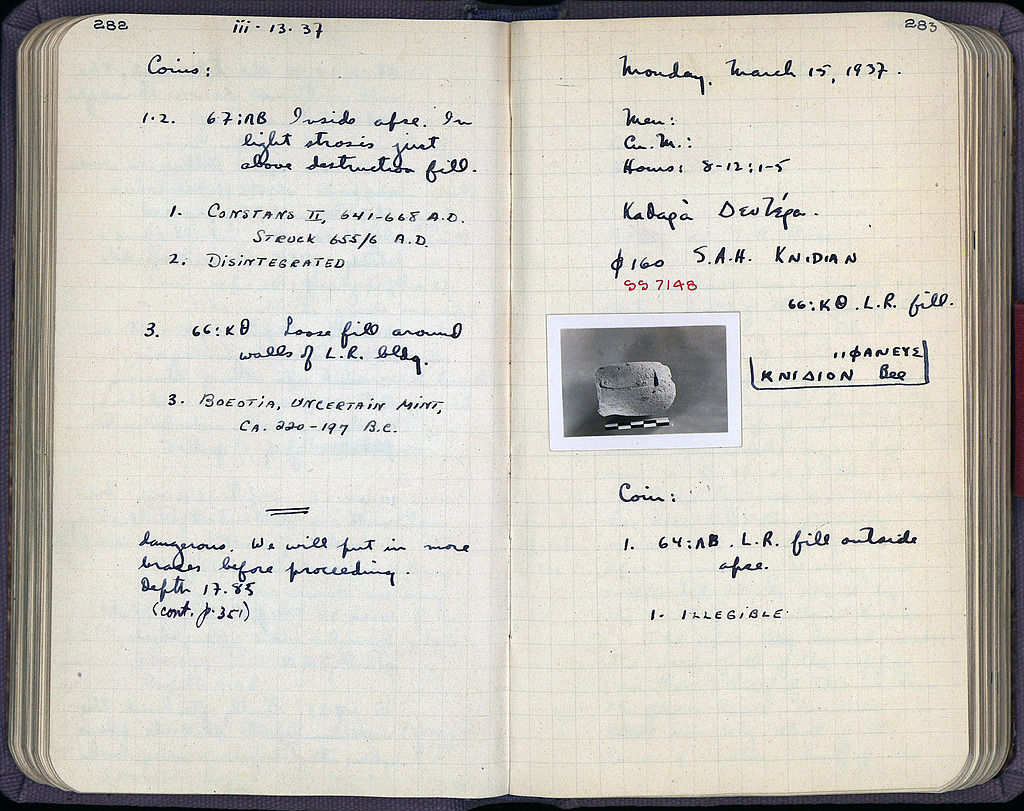 282
iii · 13 · 37
Coins:
1·2. 67:ΛΒ Inside apse. In
light strosis just
above destruction fill.
1. CONSTANS II, 641-668 A.D.
STRUCK 655/6 A.D.
2. DISINTEGRATED
3. 66:ΚΘ Loose fill around
walls of L.R. bldg.
3. BOEOTIA, UNCERTAIN MINT,
CA. 220-197 B.C.
dangerous. We will put in more
braces before proceeding.
Depth 17.85
(cont. p. 351)
283
Monday, March 15, 1937.
Men:
Cu. M.:
Hours: 8-12; 1-5
Καθαρὰ Δευτέρα.
φ 160 S.A.H. KNIDIAN
SS 7148
66:ΚΘ. L.R. fill.
ΦΑΝΕΥΣ
ΚΝΙΔΙΟΝ Bee
Coin:
1. 64:ΛΒ. L.R. fill outside
apse.
1. ILLEGIBLE